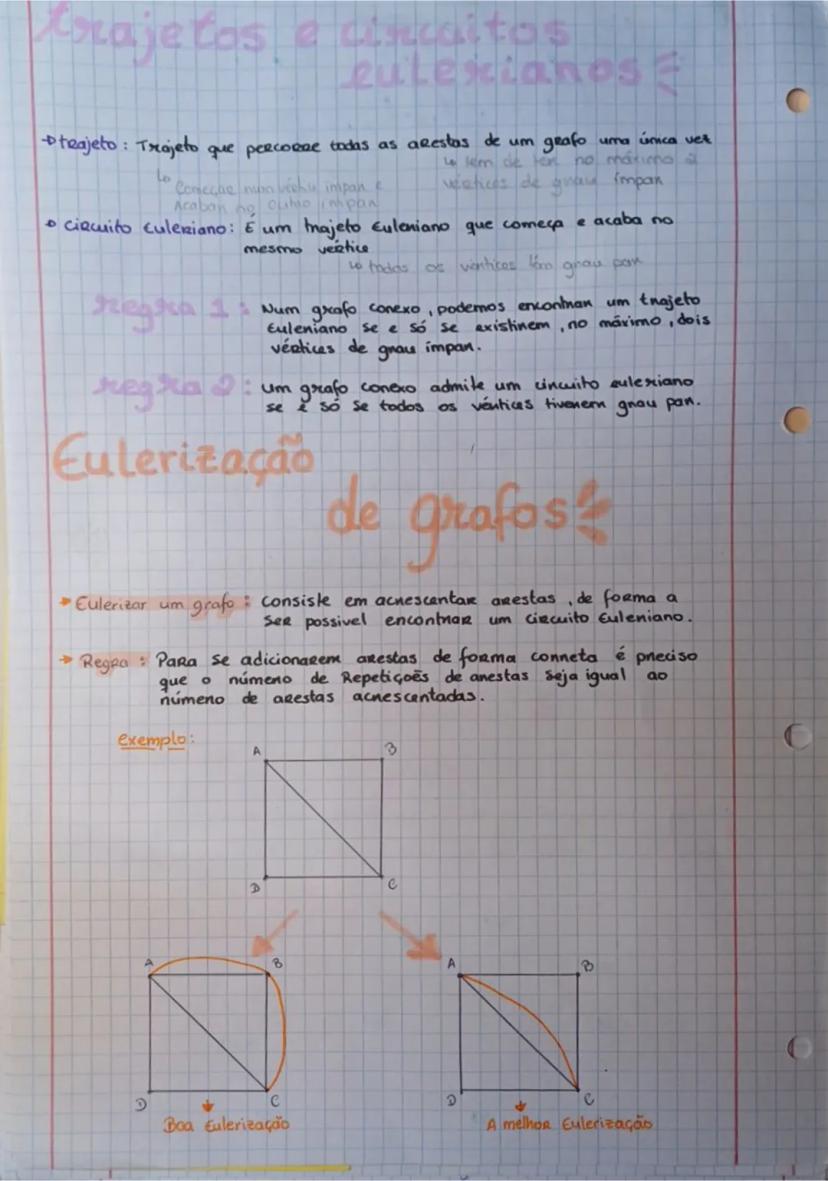 trajetos e circuitos
eulerianos
trajeto: Trajeto que percorre todas as arestas de um grafo uma única vez
↳ tem de ter no máximo 2
vértices de grau ímpar
↳ Começar num vértice ímpar e
Acabar no outro ímpar
Circuito Euleriano: É um trajeto Euleriano que começa e acaba no
mesmo vértice
↳ todos os vértices têm grau par
regra 1: Num grafo conexo, podemos encontrar um trajeto
Euleriano se e só se existirem, no máximo, dois
vértices de grau ímpar.
regra 2: um grafo conexo admite um circuito euleriano
se e só se todos os vértices tiverem grau par.
Eulerização
de grafos
Eulerizar um grafo: consiste em acrescentar arestas, de forma a
ser possivel encontrar um circuito Euleriano.
Regra: Para se adicionarem arestas de forma correta é preciso
que o número de Repetições de arestas seja igual ao
número de arestas acrescentadas.
exemplo:
A B
D C
A B A B
D C D C
Boa Eulerização A melhor Eulerização